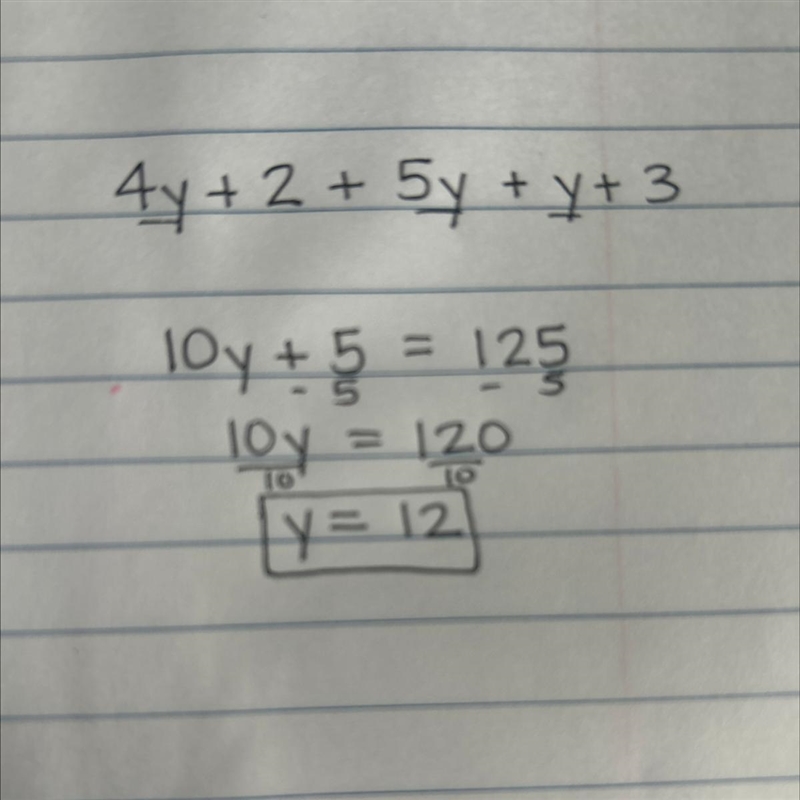 4y + 2 + 5y + y + 3
10y + 5 = 125
- 5 - 5
10y = 120
10 10
y = 12